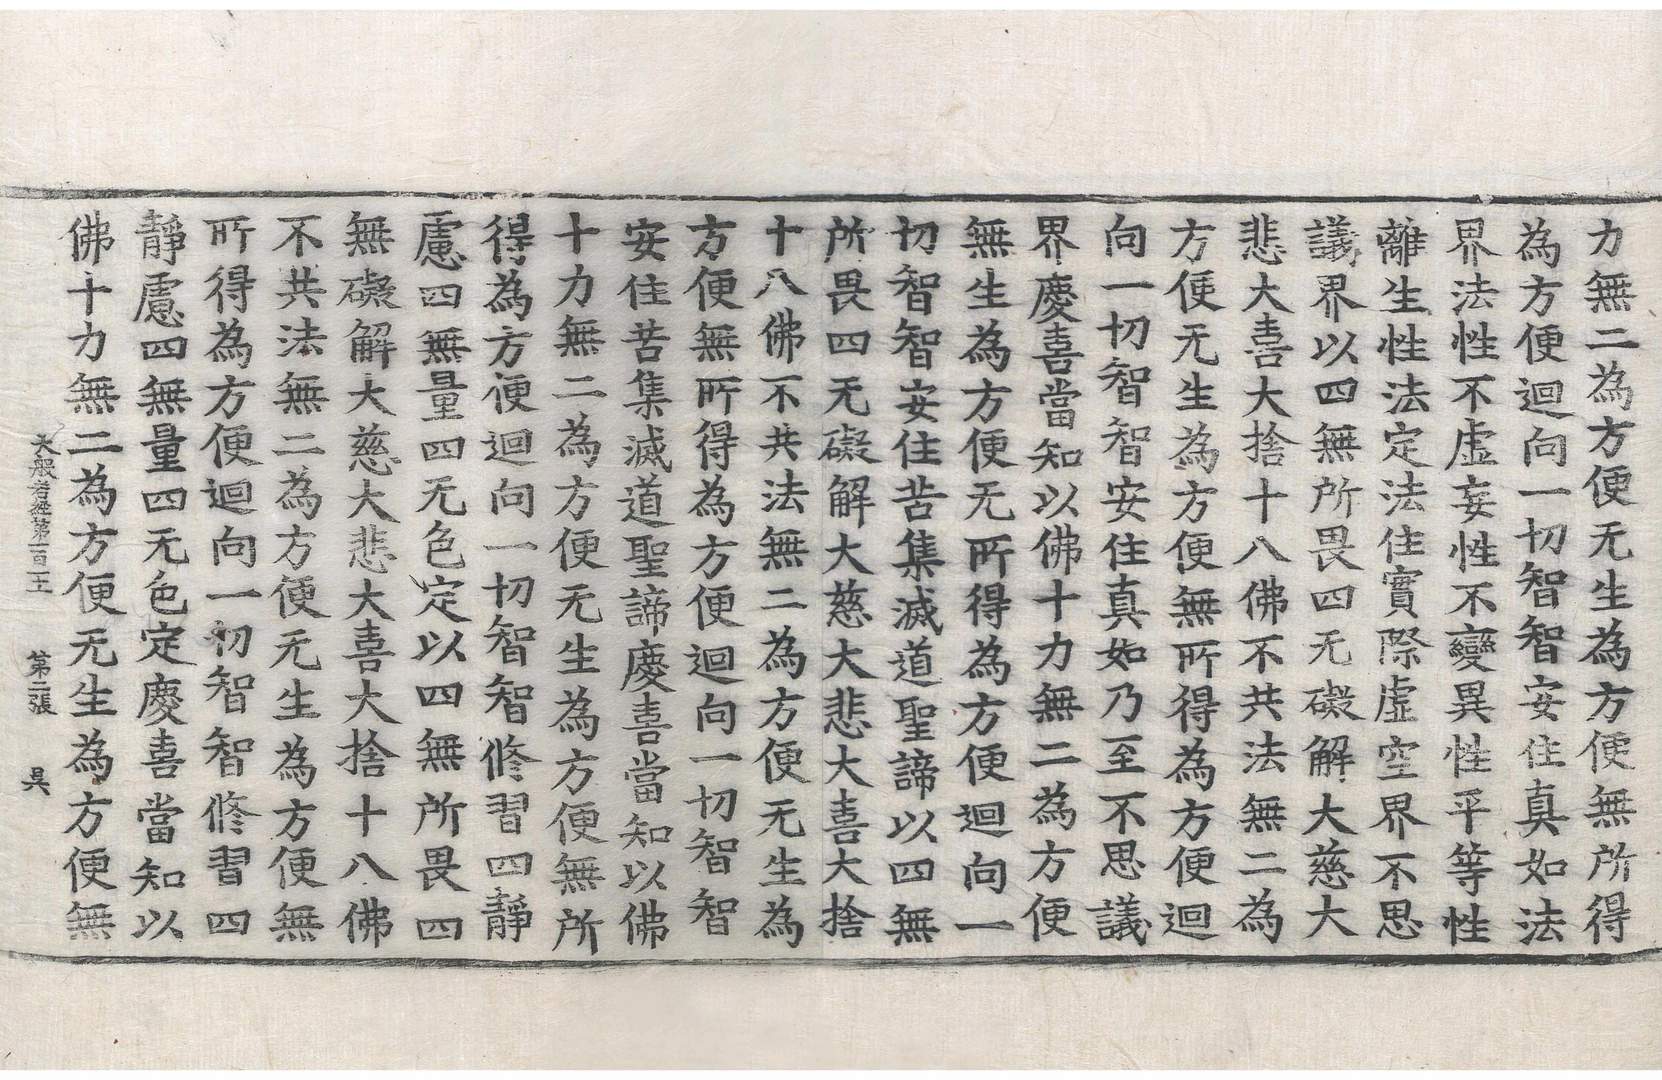 力無二為方便无生為方便無所得
為方便迴向一切智智安住真如法
界法性不虛妄性不變異性平等性
離生性法定法住實際虛空界不思
議界以四無所畏四无礙解大慈大
悲大喜大捨十八佛不共法無二為
方便无生為方便無所得為方便迴
向一切智智安住真如乃至不思議
界慶喜當知以佛十力無二為方便
無生為方便无所得為方便迴向一
切智智安住苦集滅道聖諦以四無
所畏四无礙解大慈大悲大喜大捨
十八佛不共法無二為方便无生為
方便無所得為方便迴向一切智智
安住苦集滅道聖諦慶喜當知以佛
十力無二為方便无生為方便無所
得為方便迴向一切智智修習四靜
慮四無量四无色定以四無所畏四
無礙解大慈大悲大喜大捨十八佛
不共法無二為方便无生為方便無
所得為方便迴向一切智智修習四
靜慮四無量四无色定慶喜當知以
佛十力無二為方便无生為方便無
大般若經第一百一 第二張